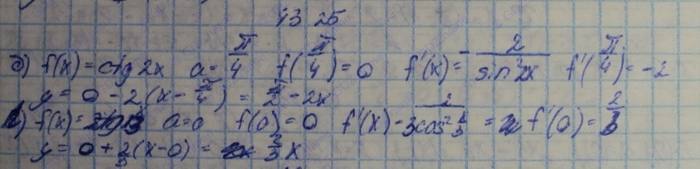 43 25
б) f(x) = ctg 2x a = π/4 f(π/4) = 0 f'(x) = -2/sin²2x f'(π/4) = -2
y = 0 - 2(x - π/4) = π/2 - 2x
a = 0 f(0) = 0 f'(x) - 2/3cos² = f'(0) = 2/3
y = 0 + 2/3(x - 0) = 2/3 x